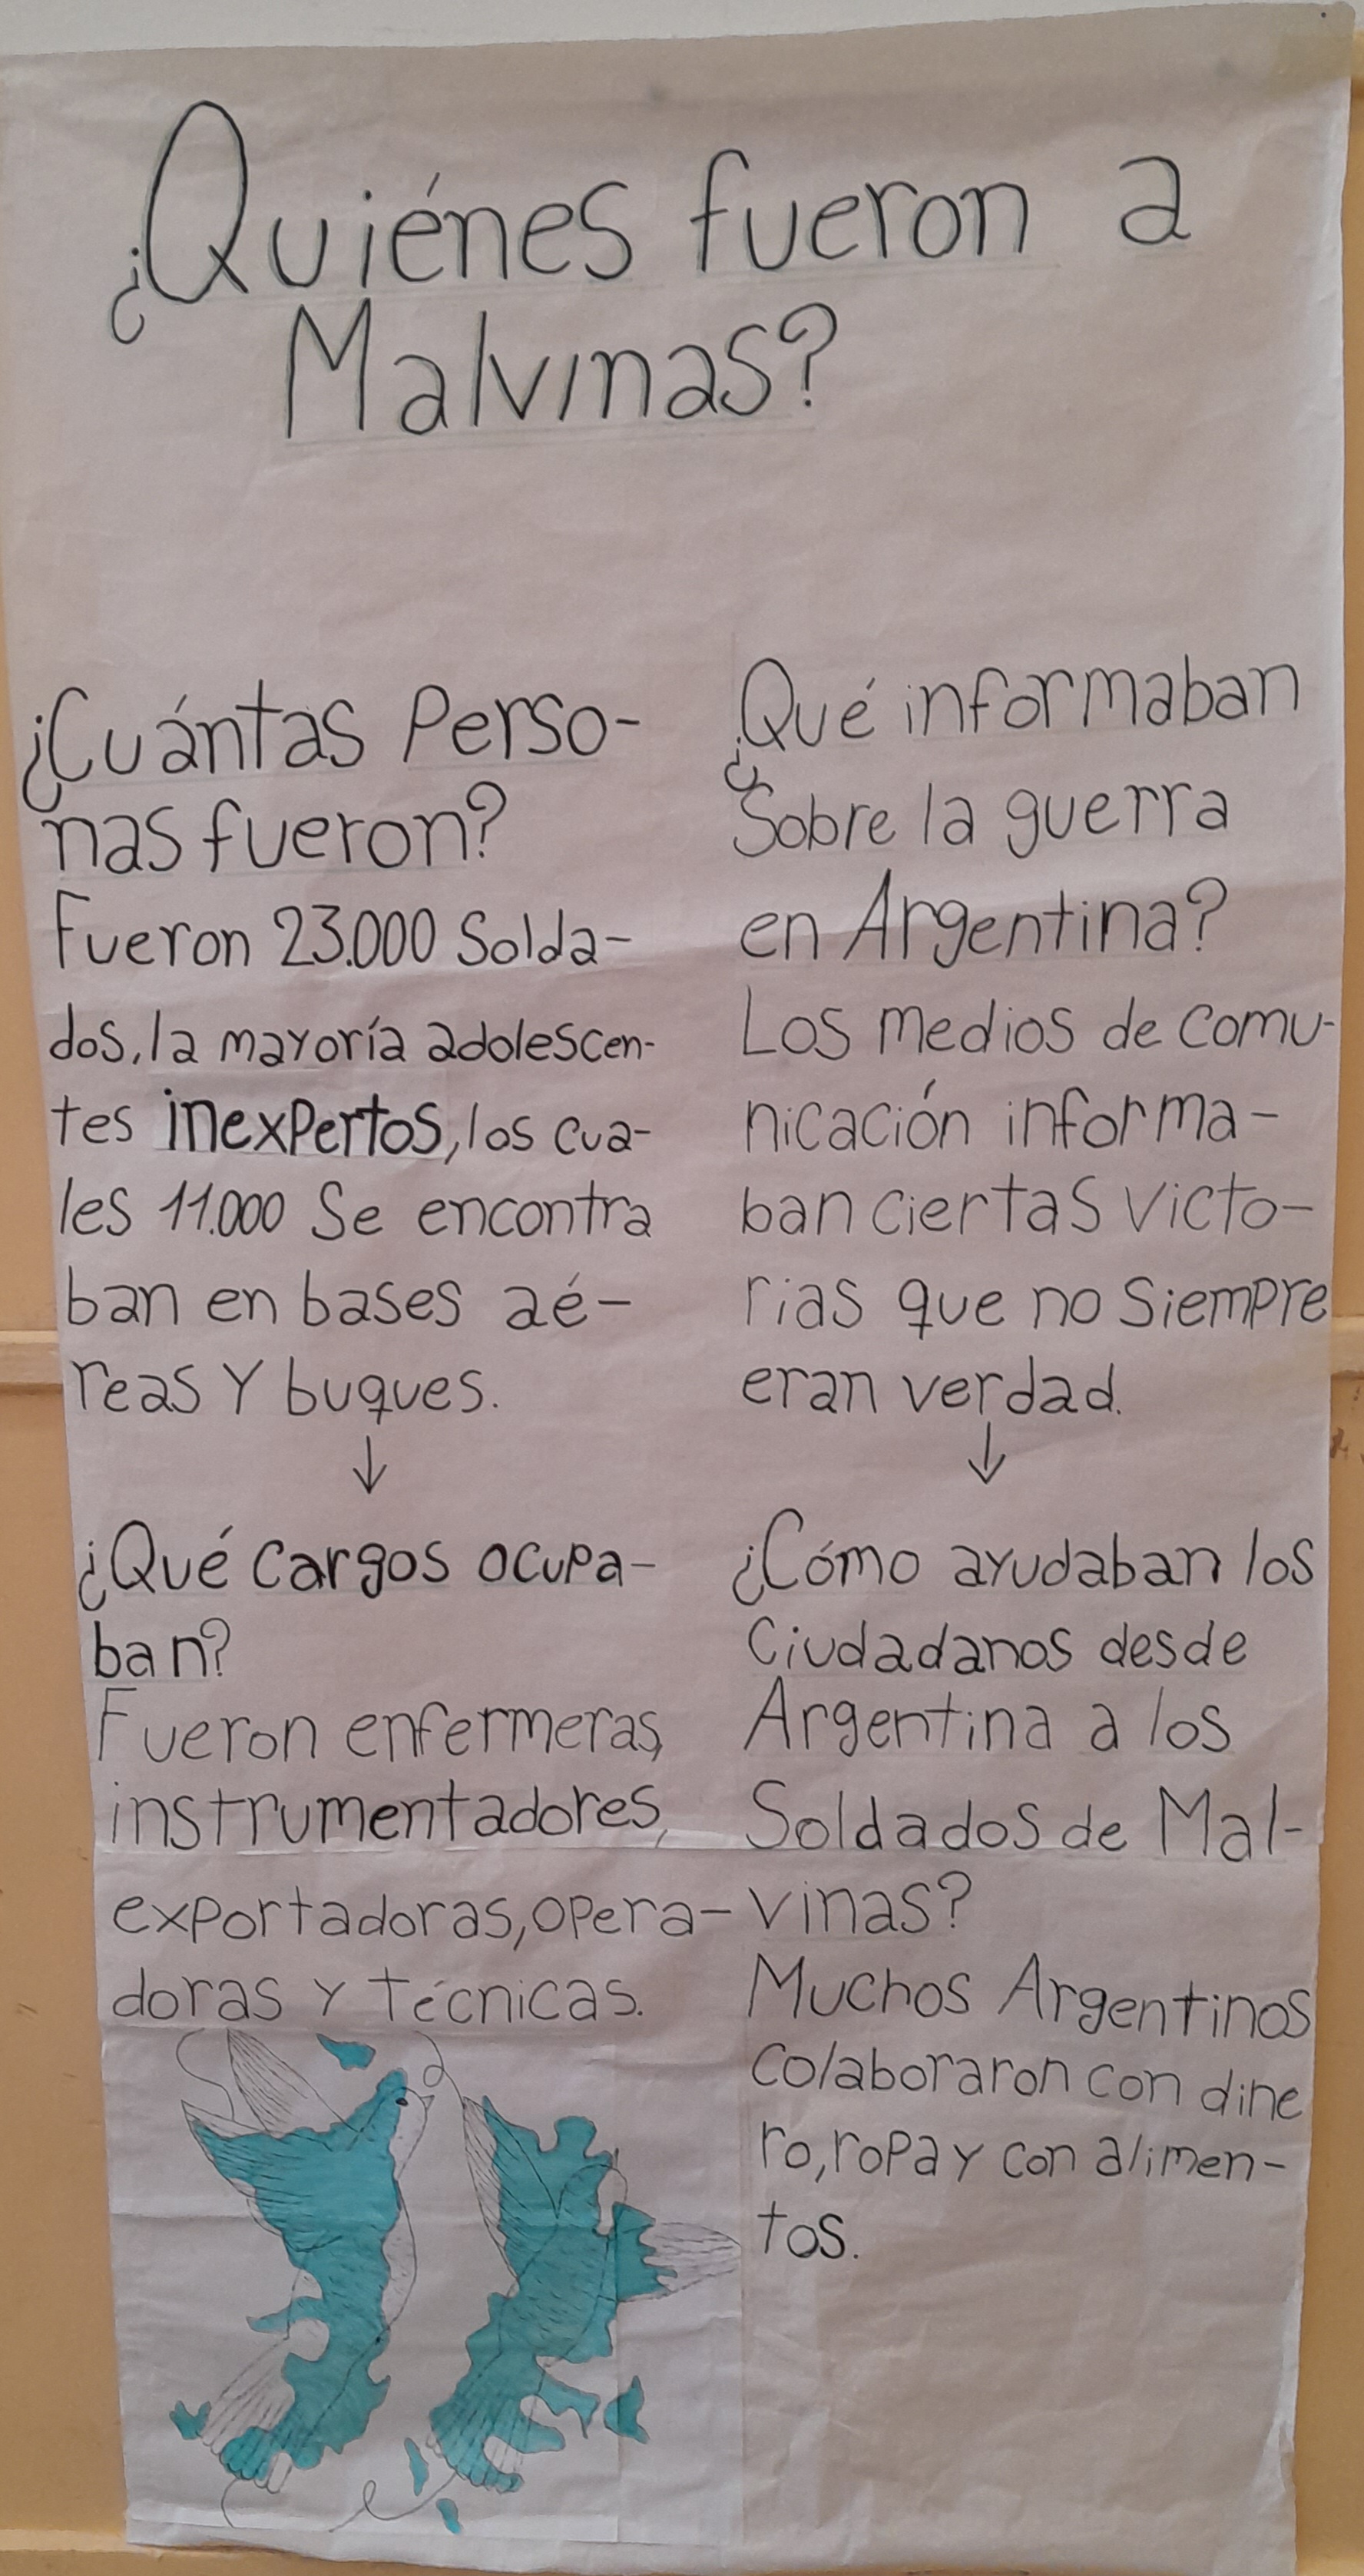 ¿Quiénes fueron a
Malvinas?
¿Cuántas Perso-
nas fueron?
Fueron 23.000 Solda-
dos, la mayoría adolescen-
tes inexpertos, los cua-
les 11.000 Se encontra
ban en bases aé-
reas y buques.
↓
¿Qué cargos ocupa-
ban?
Fueron enfermeras,
instrumentadores,
exportadoras, opera-
doras y técnicas.
¿Qué informaban
Sobre la guerra
en Argentina?
Los medios de comu-
nicación informa-
ban ciertas victo-
rias que no Siempre
eran verdad.
↓
¿Cómo ayudaban los
Ciudadanos desde
Argentina a los
Soldados de Mal-
vinas?
Muchos Argentinos
colaboraron con dine
ro, ropa y con alimen-
tos.